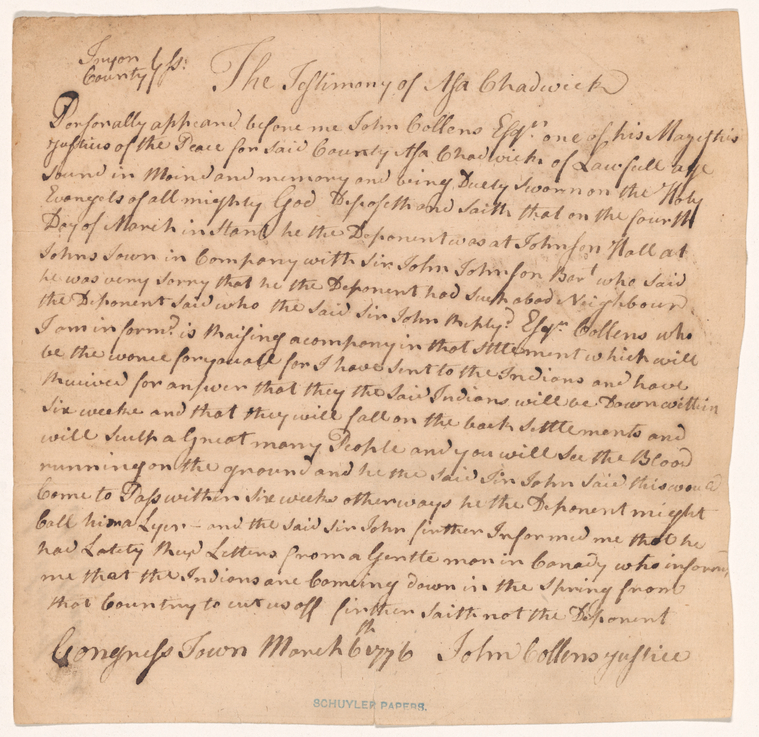 Tryon
County } Ss:
The Testimony of Asa Chadwick
Personally appeard before me John Collens Esqr. one of his Majesties
Justies of the Peace for Said County Asa Chadwick of Lawfull age
Sound in Maind and memory and being Duely Sworn on the Holy
Evangels of all mighty God Deposeth and Saith that on the fourth
Day of March in Stant he the Deponent was at Johnson Hall at
Johns Town in Company with Sir John Johnson Bart who Said
he was verry Sorry that he the Deponent had Such a bad Neighbour
the Deponent Said who the Said Sir John Replyd. Esqr. Collens who
I am informd. is Raising a company in that Sttlement which will
be the worce for you all for I have Sent to the Indians and have
Received for answer that they the Said Indians will be Down within
Six weeke and that they will fall on the back Settlements and
will Sculp a Great many People and you will See the Blood
running on the ground and he the Said Sir John Said this would
Come to Pass within Six weeks otherways he the Deponent might
Call him a Lyer - and the Said Sir John firther Informed me that he
had Lately Letters from a Gentle man in Canady who inform
me that the Indians are Comeing down in the Spring from
that Country to cut us off firther Saith not the Deponent
Congress Town March 6th 1776 John Collens Justice
SCHUYLER PAPERS.